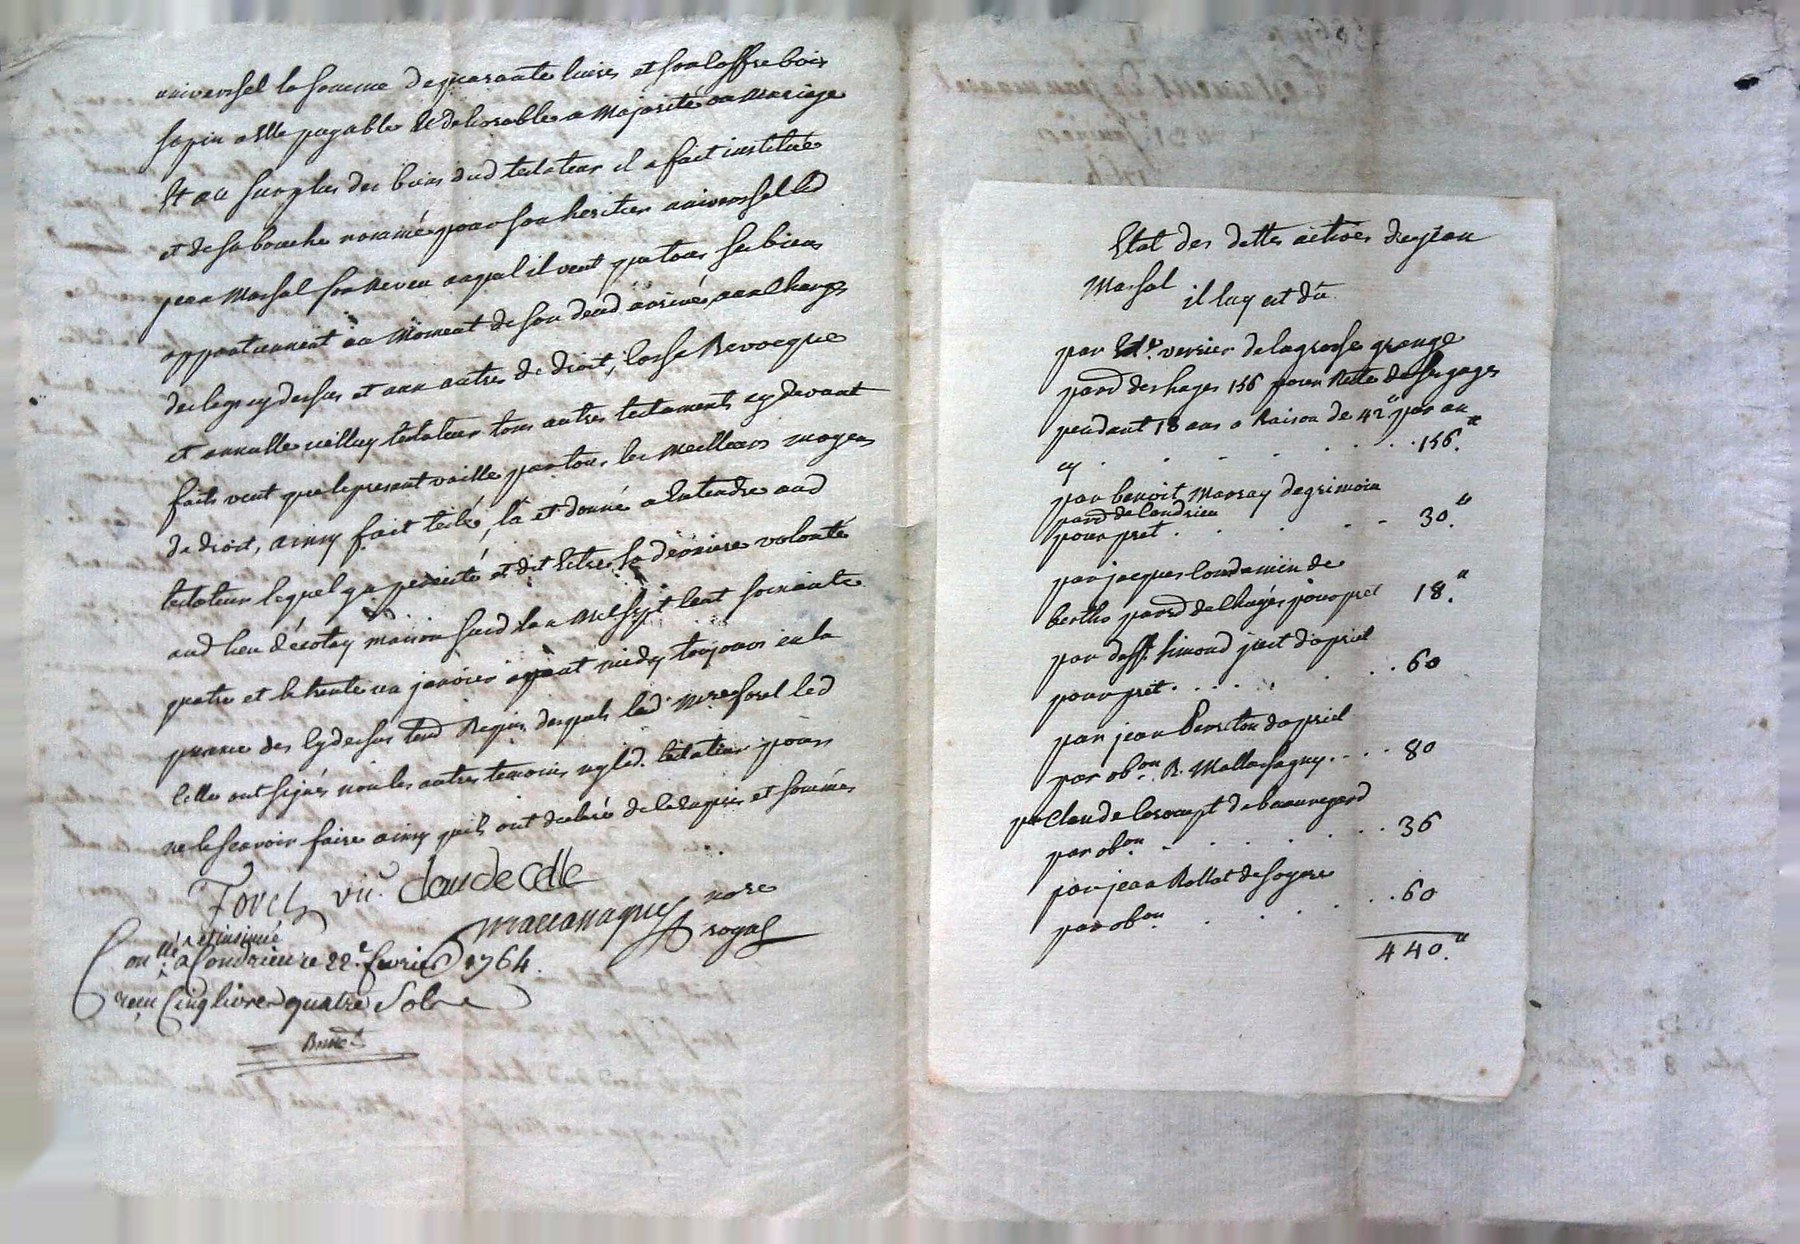 universel la somme de quarante livres et son coffre bois
sapin a elle payable et delivrable a majorité ou mariage
Et au surplus des biens dud testateur il a fait institué
et de sa bouche nommé pour son heritier universsel led
jean Marsal son neveu auquel il veut que tous ses biens
appartiennent au moment de son deced arrivé, aux charges
des legs cy dessus et aux autres de droit, Casse Revocque
et annulle icelluy testateur tous autres testaments cy devant
faits veut que le present vaille par tous les meilleurs moyens
de droit, ainsy fait testé, lû et donné a Entendre aud
testateur lequel y a persisté et dit Estre sa derniere volonté
aud lieu d'écotay maison sud l'an Mil sept Cent soixante
quatre et le trente un janvier avant midy toujours en la
presence des cy dessus tend Requis desquels led Mre forel led
Celle ont signés non les autres temoins ny led. testateur pour
ne le scavoir faire ainsy quils ont declaré de ce Enquis et sommés
Forel vic. Claude Celle
Mallassagny nore
royal
et insinué
Conllé a Condrieu ce 22e fevrier 1764.
reçu Cinq livres quatre Sols

Etat des dettes actives de jean
Marsal
il luy est dû
par Et. verrier de la grosse grange
pard des hayes 156 pour Reste de ses gages
pendant 18 ans a Raison de 42" par an
cy . . . . . . 156."
par benoit Marray de grimoin
pard de Condrieu
pour pret . . . . . 30."
par jacques Condamin de
berths pard de Chuyer pour pret 18."
par dlle. simond juct d'apriel
pour pret . . . . . . 60
par jean Berreton dapriel
par obon. R. Mallassagny . . . 80
par Claude Ceroupt de beauregard
par obon. . . . . . . 36
par jean Rollat de soyere
par obon. . . . . . . 60
440."